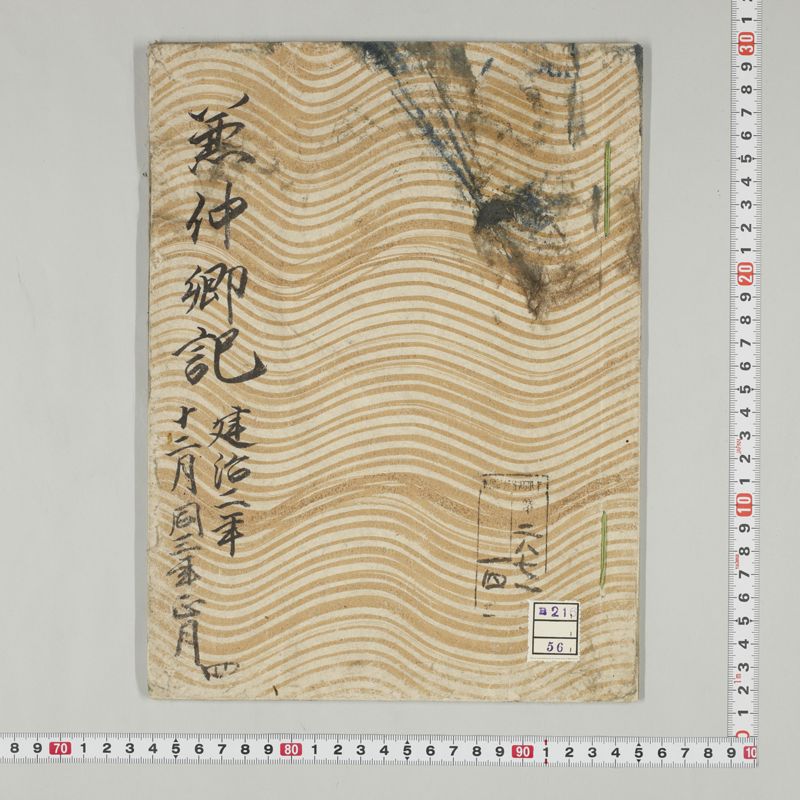 兼仲卿記
建治二年
十二月同三年正月
四
第
二八七一
一四
二
B 21
56
8 9 70 1 2 3 4 5 6 7 8 9 80 1 2 3 4 5 6 7 8 9 90 1 2 3 4 5 6 7 8 9 10
1 30 9 8 7 6 5 4 3 2 1 20 9 8 7 6 5 4 3 2 1 10 9 8 7 6 5 4 3 2 1 0
1m